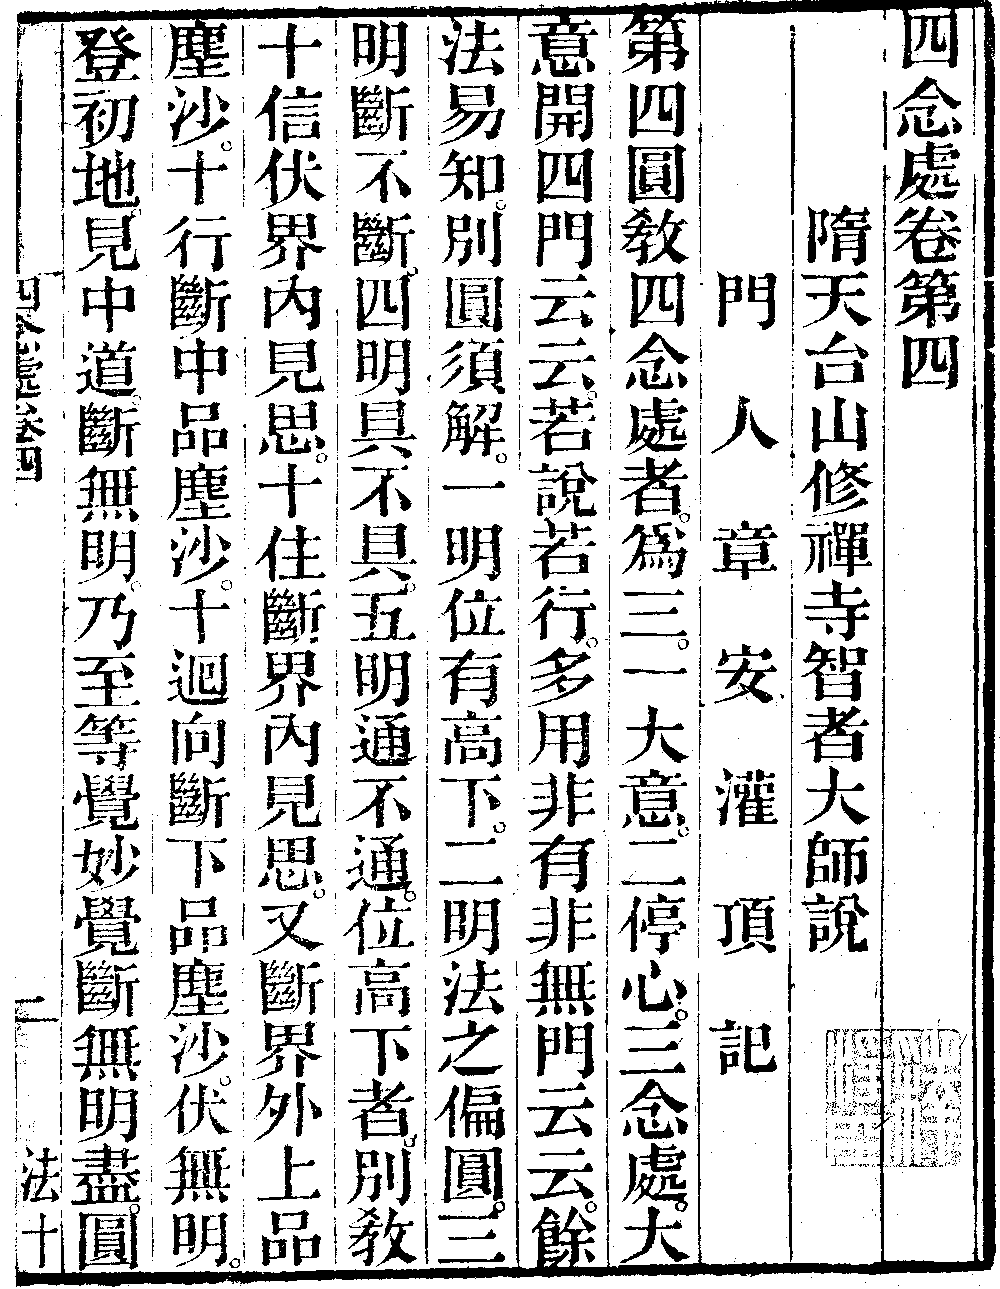 四念處卷第四
隋天台山修禪寺智者大師說
門人章安灌頂記
第四圓教四念處者。為三。一大意。二停心。三念處。大
意開四門云云。若說若行。多用非有非無門云云。餘
法易知。別圓須解。一明位有高下。二明法之偏圓。三
明斷不斷。四明具不具。五明通不通。位高下者。別教
十信伏界內見思。十住斷界內見思。又斷界外上品
塵沙。十行斷中品塵沙。十迴向斷下品塵沙。伏無明。
登初地見中道斷無明。乃至等覺妙覺斷無明盡。圓
四念處卷四
二
法十